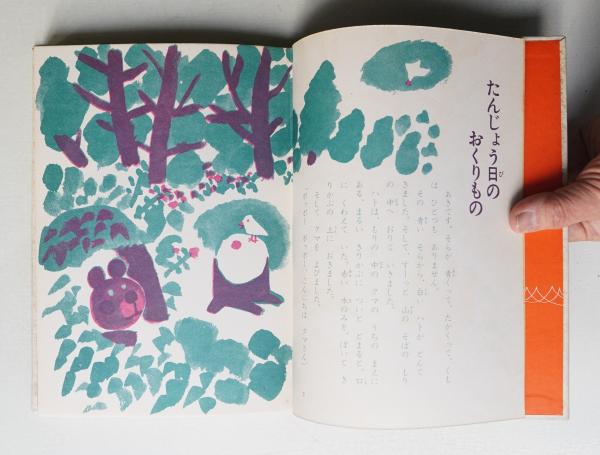 たんじょう日の
おくりもの
あきです。そらが 青くって、たかくって、くも
は ひとつも ありません。
その 青い そらから、白い ハトが とんで
きました。そして、すーっと 山の そばの もり
の 中へ おりて いきました。
ハトは、もりの 中の クマの うちの まえに
ある、まるい きりかぶに ついと とまると、口
に くわえて いた、赤い 木のみを、ぽいと き
りかぶの 上に おきました。
そして、クマを よびました。
「ポッポー、ポッポー、こんにちは クマさん」